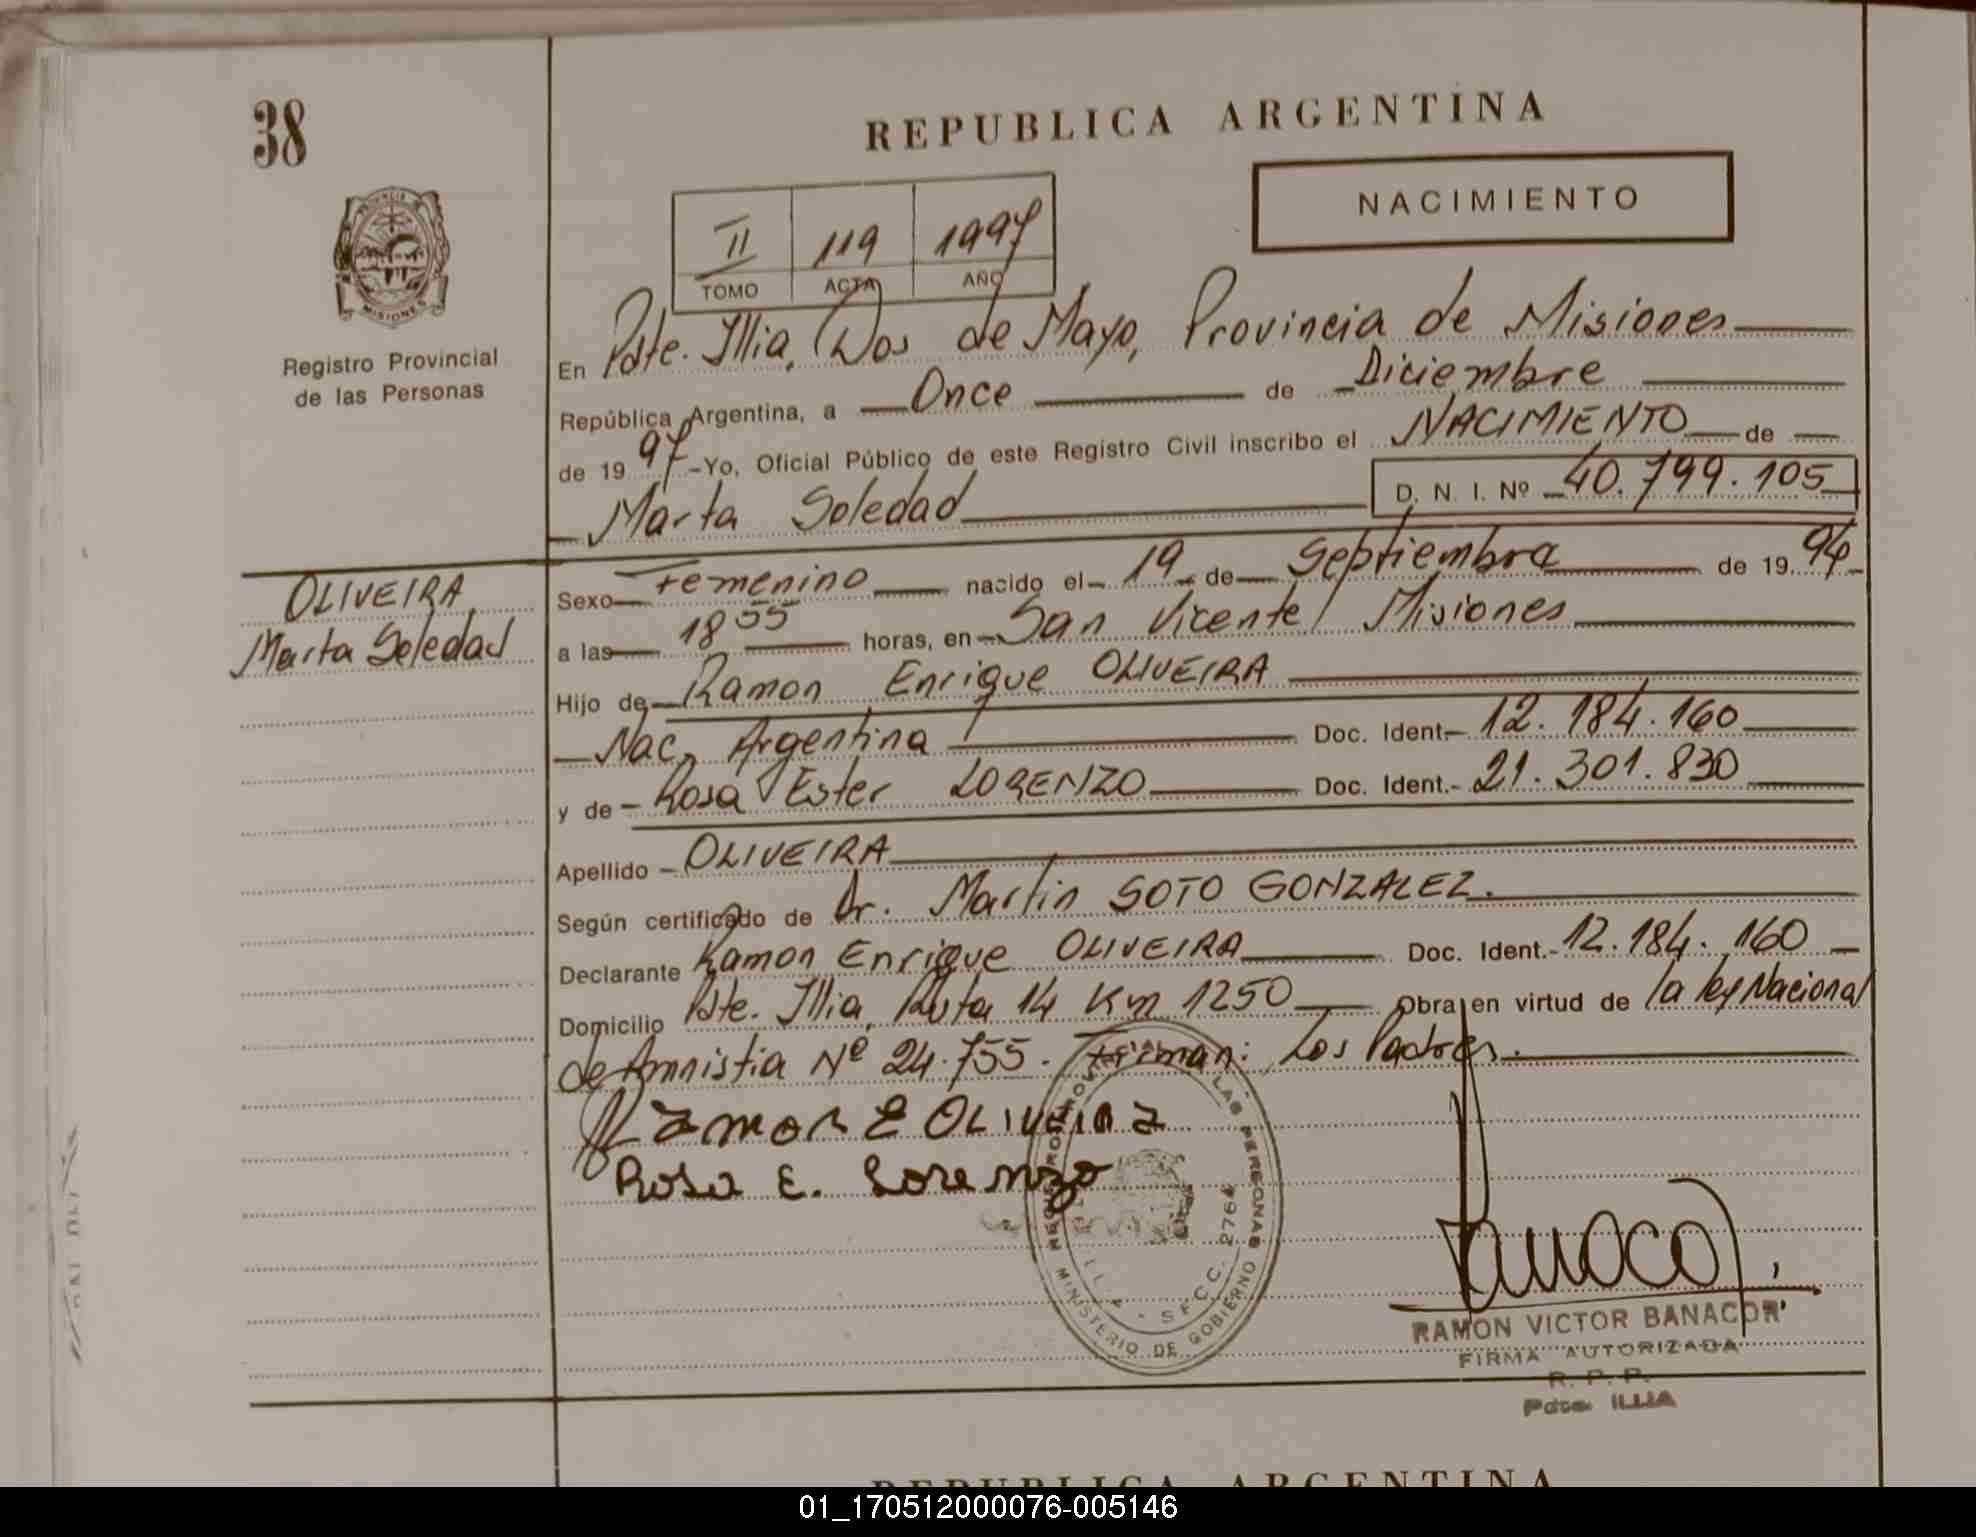 38
REPUBLICA ARGENTINA
NACIMIENTO
II 119 1997
TOMO ACTA AÑO
PROVINCIA DE MISIONES
Registro Provincial
de las Personas
En Pdte. Illia, Dos de Mayo, Provincia de Misiones
República Argentina, a Once de Diciembre
de 1997 -Yo, Oficial Público de este Registro Civil inscribo el NACIMIENTO de
Marta Soledad D. N. I. Nº 40.799.105
OLIVEIRA
Marta Soledad
Sexo Femenino nacido el 19 de Septiembre de 1994
a las 18 55 horas, en San Vicente, Misiones
Hijo de Ramon Enrique OLIVEIRA
Nac. Argentina Doc. Ident. 12.184.160
y de Rosa Ester LORENZO Doc. Ident. 21.301.830
Apellido OLIVEIRA
Según certificado de Dr. Martin SOTO GONZALEZ.
Declarante Ramon Enrique OLIVEIRA Doc. Ident. 12.184.160
Domicilio Pdte. Illia, Ruta 14 Km 1250 Obra en virtud de la ley Nacional
de Amnistia Nº 24.755. Firman: Los Padres.
Ramon E Oliveira
Rosa E. Lorenzo
LAS PERSONAS
MINISTERIO DE GOBIERNO
S F C C. 2764
RAMON VICTOR BANACOR
FIRMA AUTORIZADA
R. P. P.
Pdte. ILLIA
REPUBLICA ARGENTINA
01_170512000076-005146